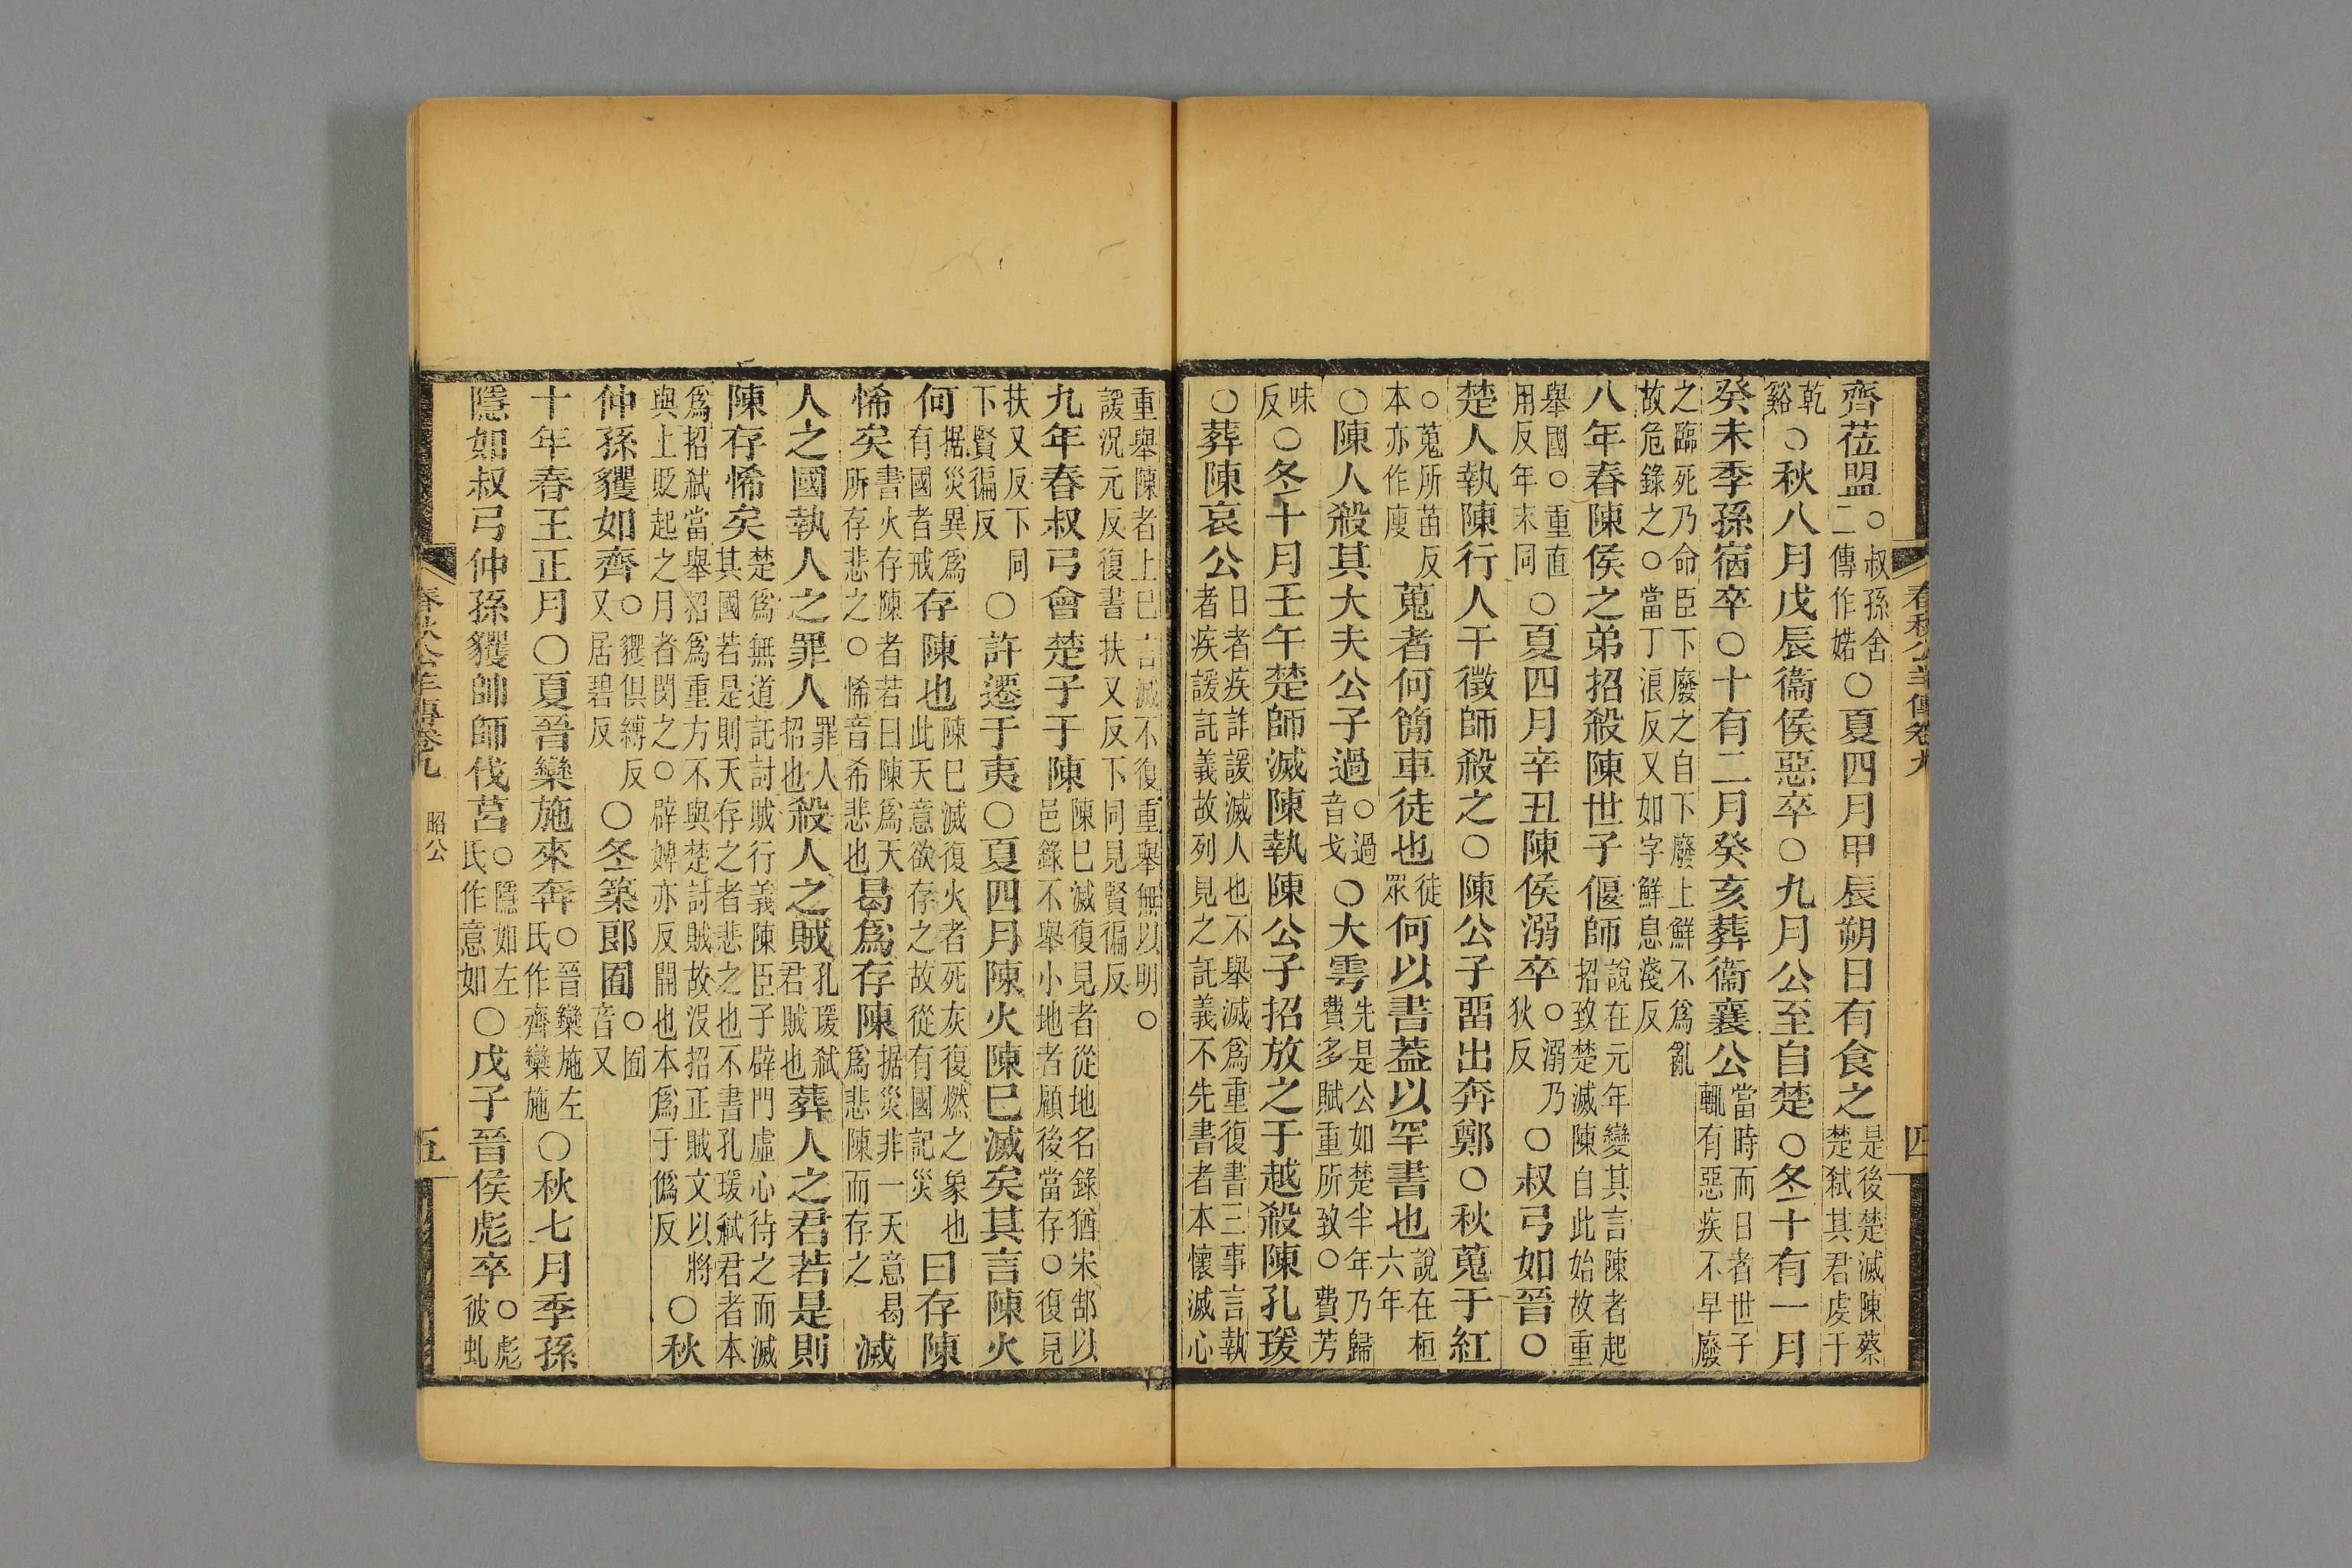 春秋公羊傳卷九　四
齊莅盟○叔孫舍二傳作婼○夏四月甲辰朔日有食之是後楚滅陳蔡楚弑其君虔于
乾谿○秋八月戊辰衞侯惡卒○九月公至自楚○冬十有一月
癸未季孫宿卒○十有二月癸亥葬衞襄公當時而日者世子輒有惡疾不早廢
之臨死乃命臣下廢之自下廢上鮮不爲亂故危錄之○當丁浪反又如字鮮息淺反
八年春陳侯之弟招殺陳世子偃師說在元年變其言陳者起招致楚滅陳自此始故重
舉國○重直用反年末同○夏四月辛丑陳侯溺卒○溺乃狄反○叔弓如晉○
楚人執陳行人干徵師殺之○陳公子畱出奔鄭○秋蒐于紅
○蒐所苗反本亦作廋蒐者何簡車徒也徒眾何以書蓋以罕書也說在桓六年
○陳人殺其大夫公子過○過音戈○大雩先是公如楚半年乃歸費多賦重所致○費芳
味反○冬十月壬午楚師滅陳執陳公子招放之于越殺陳孔瑗
○葬陳哀公日者疾詐諼滅人也不舉滅爲重復書三事言執者疾諼託義故列見之託義不先書者本懷滅心
重舉陳者上已言滅不復重舉無以明○諼況元反復書扶又反下同見賢徧反
九年春叔弓會楚子于陳陳巳滅復見者從地名錄猶宋郜以邑錄不舉小地者顧後當存○復見
扶又反下同下賢徧反○許遷于夷○夏四月陳火陳巳滅矣其言陳火
何据災異爲有國者戒存陳也陳巳滅復火者死灰復燃之象也此天意欲存之故從有國記災曰存陳
悕矣書火存陳者若曰陳爲天所存悲之○悕音希悲也曷爲存陳据災非一天意曷爲悲陳而存之滅
人之國執人之罪人罪人招也殺人之賊孔瑗弑君賊也葬人之君若是則
陳存悕矣楚爲無道託討賊行義陳臣子辟門虛心待之而滅其國若是則天存之者悲之也不書孔瑗弑君者本
爲招弑當舉招爲重方不與楚討賊故沒招正賊文以將與上貶起之月者閔之○辟婢亦反開也本爲于僞反○秋
仲孫貜如齊○貜俱縛反又居碧反○冬築郎囿○囿音又
十年春王正月○夏晉欒施來奔○晉欒施左氏作齊欒施○秋七月季孫
隱如叔弓仲孫貜帥師伐莒○隱如左氏作意如○戊子晉侯彪卒○彪彼虬
春秋公羊傳卷九　昭公　五